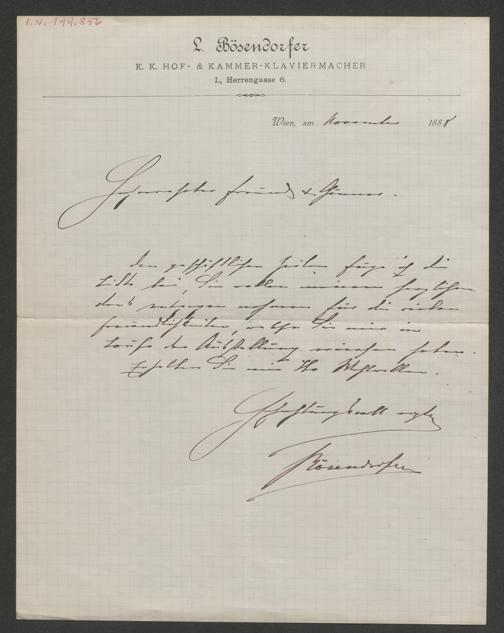 I.N. 199.856
L. Bösendorfer
K. K. HOF- & KAMMER-KLAVIERMACHER
I., Herrengasse 6.
Wien, am November 1888
Hochverehrter Freund & Gönner.
Den geschäftlichen Zeilen füge ich die
Bitte bei, Sie wollen meinen herzlichen
Dank entgegen nehmen für die vielen
Freundlichkeiten, welche Sie mir im
Laufe der Ausstellung erwiesen haben.
Erhalten Sie mir Ihr Wohlwollen.
Hochachtungsvoll ergeben
Bösendorfer